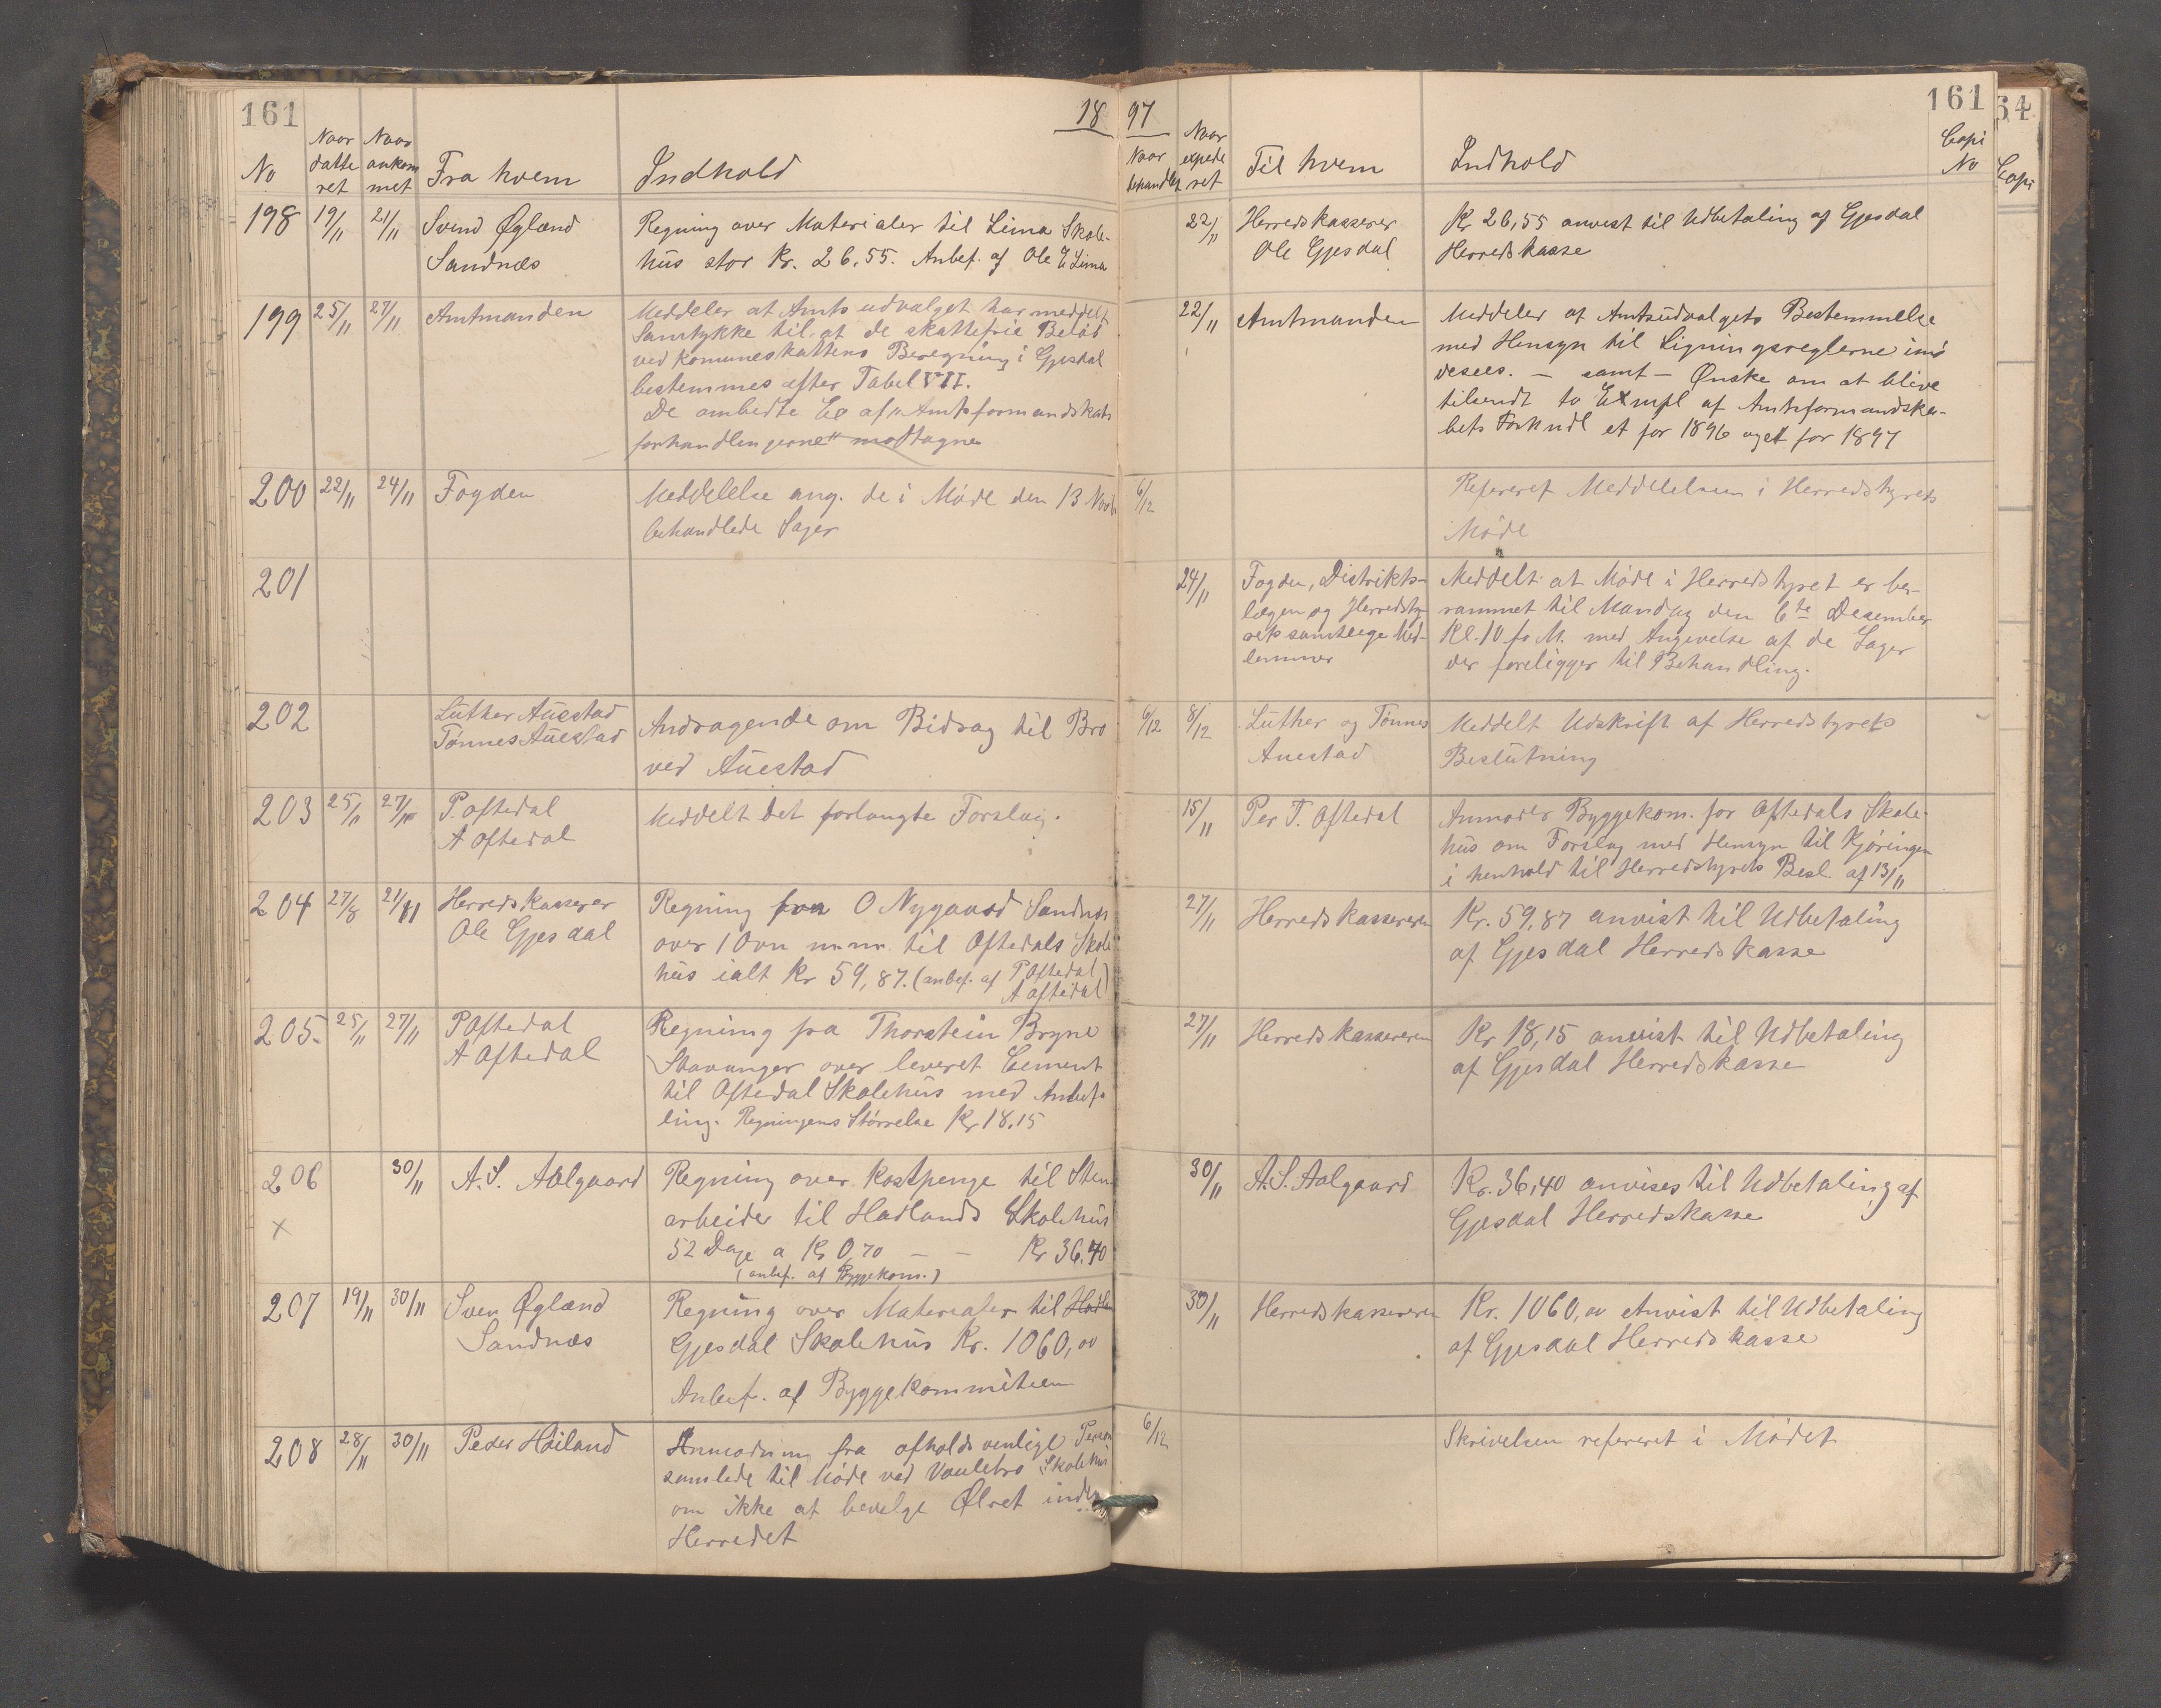 161
18
No
Naar datteret
Naar ankommet
Fra hvem
Indhold
198 19/11 21/11 Svend Øgland Regning over Materialer til Lima Skole-
Sandnæs hus stor Kr. 26,55. Anbef. af Ole E Lima
199 25/11 27/11 Amtmanden Meddeler at Amtsudvalget har meddelt
Samtykke til at de skattefrie Beløb
ved komuneskattens Beregning i Gjesdal
bestemmes efter Tabel VII.
De ombedte Ex af "Amtsformandskabs
forhandlingerne" modtagne
200 22/11 24/11 Fogden Meddelelse ang. de i Møde den 13 Novb
behandlede Sager
201
202 Luther Auestad Andragende om Bidrag til Bro
Tønnes Auestad ved Auestad
203 25/11 27/11 P. Oftedal Meddelt det forlangte Forslag.
A Oftedal
204 27/8 21/11 Herredskasserer Regning fra O Nygaard Sandnes
Ole Gjesdal over 1 Ovn m.m. til Oftedals Skole
hus ialt Kr 59,87. (anbef. af P Oftedal
A Oftedal)
205. 25/11 27/11 P Oftedal Regning fra Thorstein Bryne
A Oftedal Stavanger over leveret Cement
til Oftedal Skolehus med Anbef-
ling. Regningens Størrelse Kr 18,15
206 30/11 A. S. Aalgaard Regning over Kostpenge til Sten
x arbeider til Hadlands Skolehus
52 Dage a Kr 0,70 — — Kr 36,40
(anbef. af Byggekom.)
207 19/11 30/11 Sven Øgland Regning over Materialer til Hadlan
Sandnæs Gjesdal Skolehus Kr. 1060,00
Anbef. af Byggekommiteen
208 28/11 30/11 Peder Høiland Anmodning fra afholdsvenlige Person
samlede til Møde ved Vaulebro Skolehus
om ikke at bevilge Ølret inden
Herredet
97
161
64
Naar behandlet
Naar expederet
Til hvem
Indhold
Copi No
Copi
22/11 Herredskasserer Kr 26,55 anvist til Udbetaling af Gjesdal
Ole Gjesdal Herredskasse
22/11 Amtmanden Meddeler at Amtsudvalgets Bestemmelse
med Hensyn til Ligningsreglerne imø
desees. — samt — Ønske om at blive
tilsendt to Exmpl af Amtsformandska-
bets Forhndl et for 1896 og et for 1897
6/12 Refereret Meddelelsen i Herredstyrets
Møde
24/11 Fogden, Distrikts- Meddelt at Møde i Herredstyret er be-
lægen og Herredsty- rammet til Mandag den 6te Desember
rets samtlege Med- Kl. 10 fo M. med Angivelse af de Sager
lemmer der foreligger til Behandling.
6/12 8/12 Luther og Tønnes Meddelt Udskrift af Herredstyrets
Auestad Beslutning
15/11 Per T. Oftedal Anmoder Byggekom. for Oftedals Skole-
hus om Forslag med Hensyn til Kjøringen
i henhold til Herredstyrets Besl. af 13/11
27/11 Herredskassereren Kr. 59,87 anvist til Udbetaling
af Gjesdal Herredskasse
27/11 Herredskassereren Kr 18,15 anvist til Udbetaling
af Gjesdal Herredskasse
30/11 A. S. Aalgaard Kr. 36,40 anvises til Udbetaling af
Gjesdal Herredskasse
30/11 Herredskassereren Kr. 1060,00 Anvist til Udbetaling
af Gjesdal Herredskasse
6/12 Skrivelsen refereret i Mødet